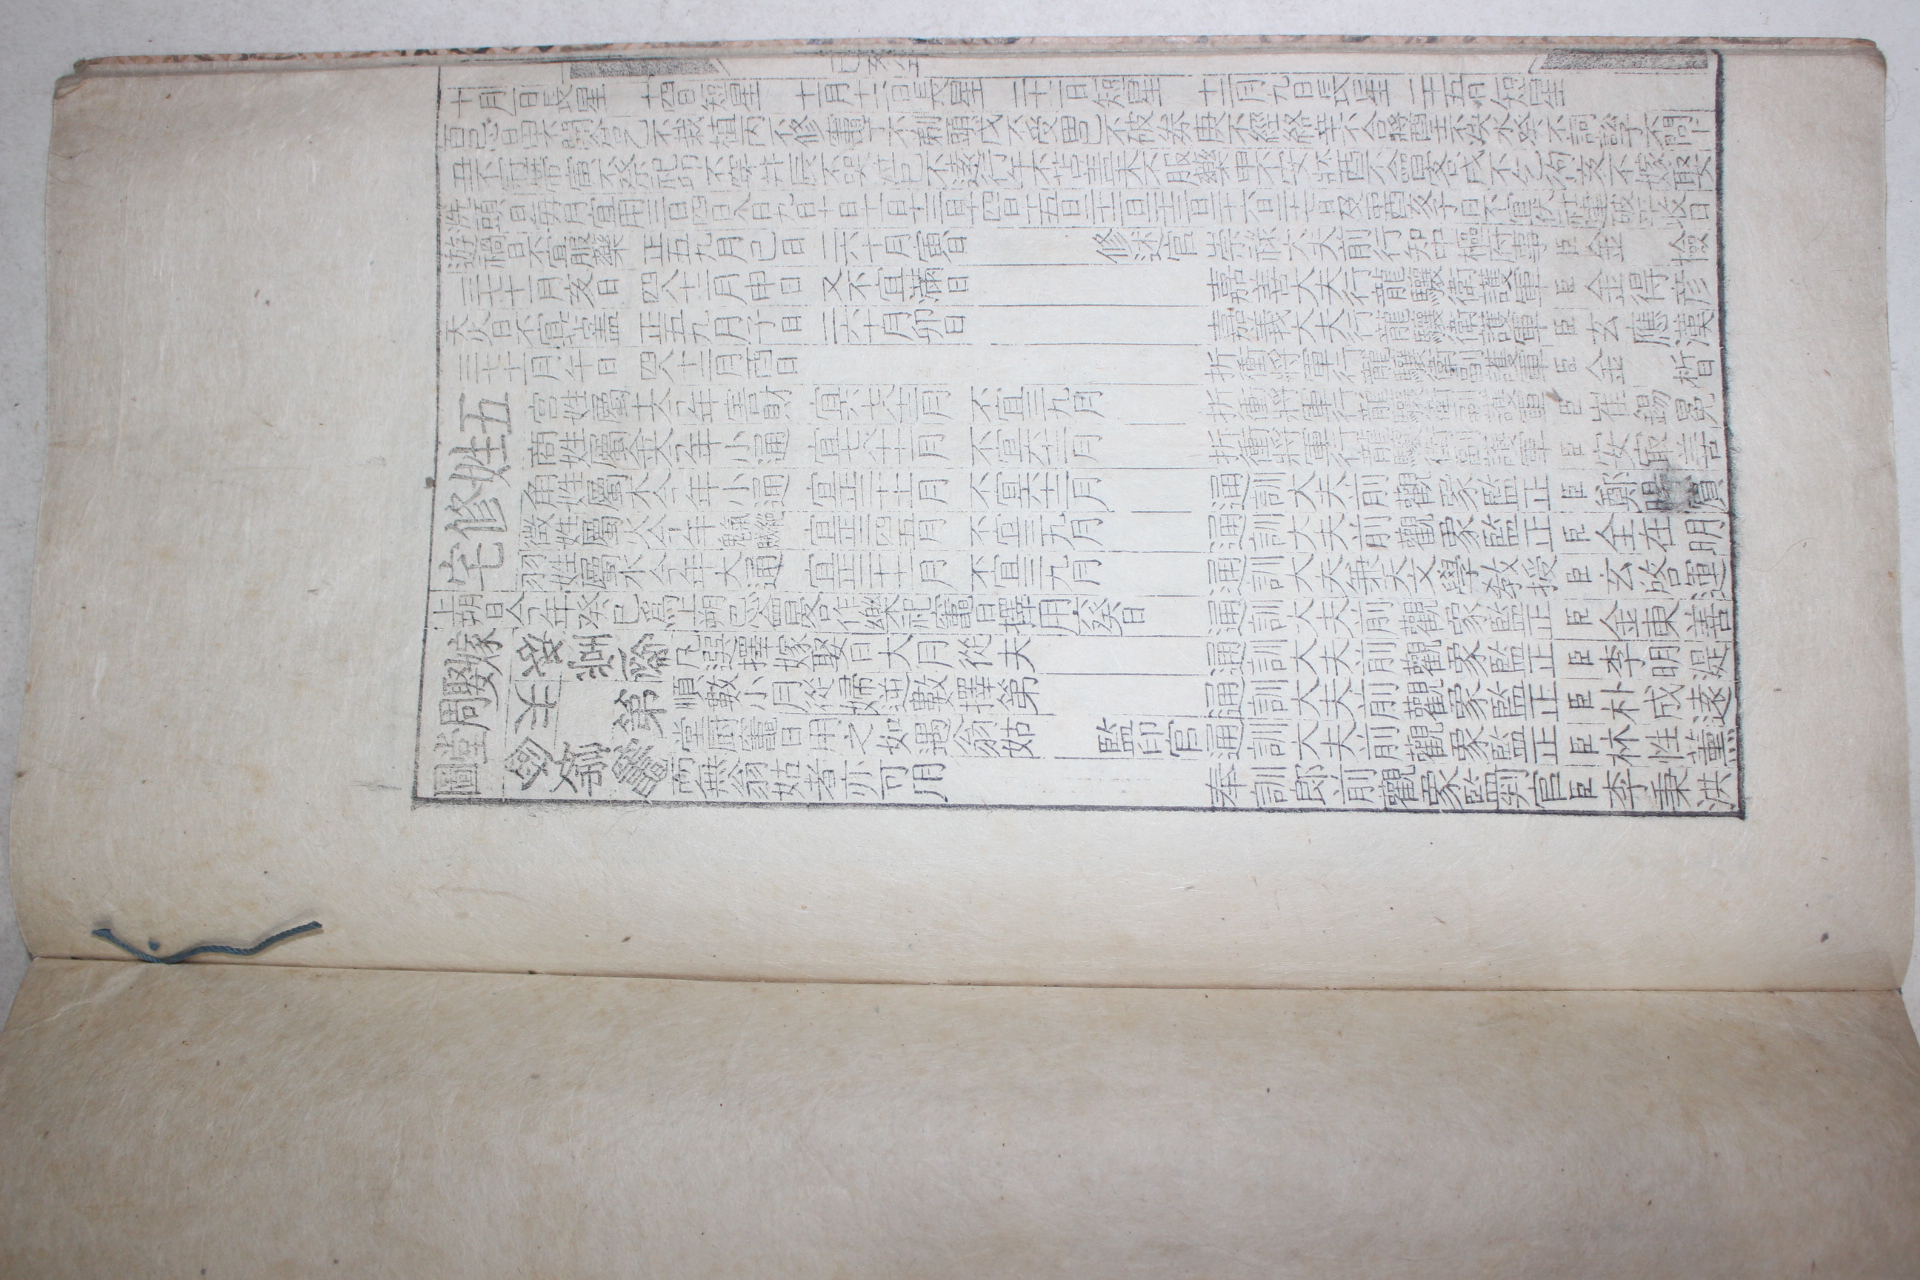 十月一日長星 十四日短星 十一月十二日長星 二十二日短星 十二月九日長星 二十五日短星
百忌日甲不開倉乙不栽植丙不修竈丁不剃頭戊不受田己不破券庚不經絡辛不合醬壬不決水癸不詞訟子不問卜
丑不冠帶寅不祭祀卯不穿井辰不哭泣巳不遠行午不苫盖未不服藥申不安牀酉不會客戌不乞狗亥不嫁娶
洗頭日每月宜用三日四日八日九日十日十一日十三日十四日十五日二十二日二十三日二十六日二十七日及酉亥子日不宜伏社建破平收日
遊禍日不宜服藥 正五九月巳日 二六十月寅日 修述官 崇祿大夫前行知中樞府事臣金 㯋
三七十一月亥日 四八十二月申日 又不宜滿日 嘉善大夫行龍驤衛護軍臣金得彦
天火日不宜苫盖 正五九月子日 二六十月卯日 嘉義大夫行龍驤衛護軍臣玄應漢
三七十一月午日 四八十二月酉日 折衝將軍行龍驤衛副護軍臣金 晳
五姓修宅
宮姓屬土今年害財 不宜三九月 折衝將軍行龍驤衛副護軍臣崔錫冕
商姓屬金今年小通 折衝將軍行龍驤衛副護軍臣安㝡善
角姓屬木今年小通 通訓大夫前觀象監正臣鄭
徵姓屬火今年 宜正三四五月 不宜三九月 通訓大夫前觀象監正臣全在明
羽姓屬水今年大通 不宜三九月 通訓大夫兼天文學敎授臣玄啓運
上朔日今年癸巳爲上朔忌會客作樂祀竈日擇用六癸日 通訓大夫前觀象監正臣金東善
嫁娶周堂圖
夫 姑 堂 翁 第 竈 婦 廚
凡選擇嫁娶日大月從夫 通訓大夫前觀象監正臣李明湜
順數小月從婦逆數擇第 通訓大夫前觀象監正臣朴成遠
堂廚竈日用之如遇翁姑 監印官 通訓大夫前觀象監正臣林性薰
而無翁姑者亦可用 奉訓郎前觀象監判官臣李秉洪